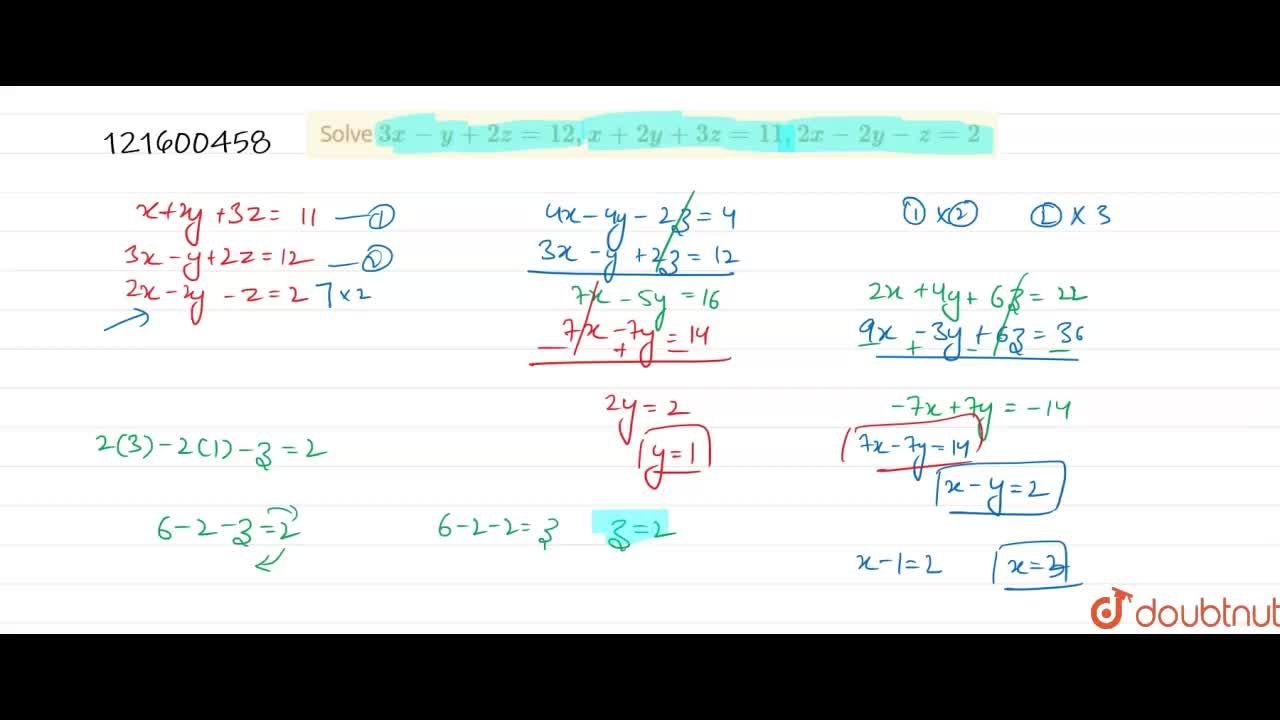 121600458
Solve 3x − y + 2z = 12, x + 2y + 3z = 11, 2x − 2y − z = 2
x+2y+3z= 11 — ①
3x-y+2z=12 — ②
2x-2y-z=2 ] ×2
2(3)-2(1)-z=2
6-2-z=2
6-2-2=z
z=2
4x-4y-2z=4
3x-y+2z=12
7x-5y=16
7x-7y=14
- + -
2y=2
y=1
① ×② ① × 3
2x+4y+6z=22
9x-3y+6z=36
- + - -
-7x+7y=-14
7x-7y=14
x-y=2
x-1=2
x=3
doubtnut